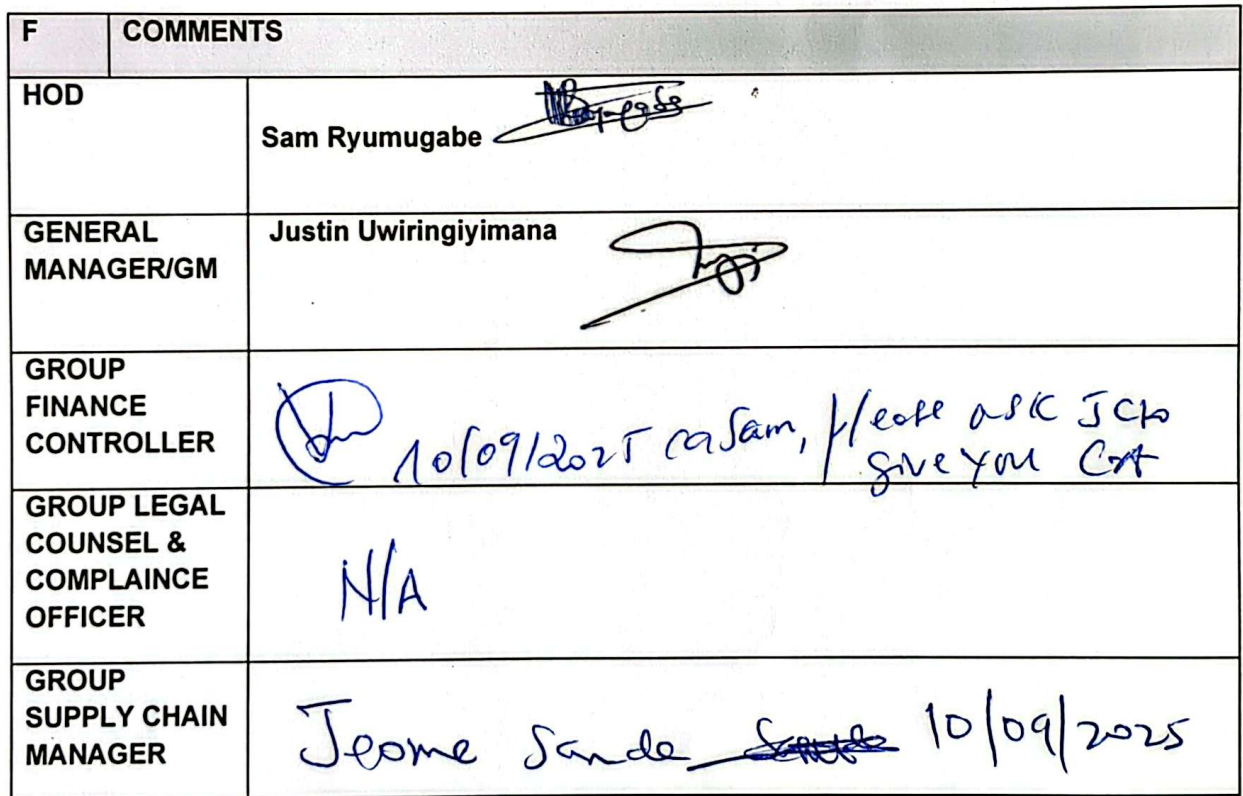 F COMMENTS
HOD
Sam Ryumugabe
GENERAL
MANAGER/GM
Justin Uwiringiyimana
GROUP
FINANCE
CONTROLLER
10/09/2025 Sam, please ask
give you
GROUP LEGAL
COUNSEL &
COMPLAINCE
OFFICER
N/A
GROUP
SUPPLY CHAIN
MANAGER
Jeome Sande 10/09/2025